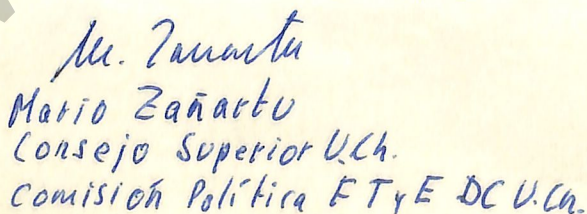 M. Zañartu
Mario Zañartu
Consejo Superior U.Ch.
Comisión Política E T y E DC U.Ch.